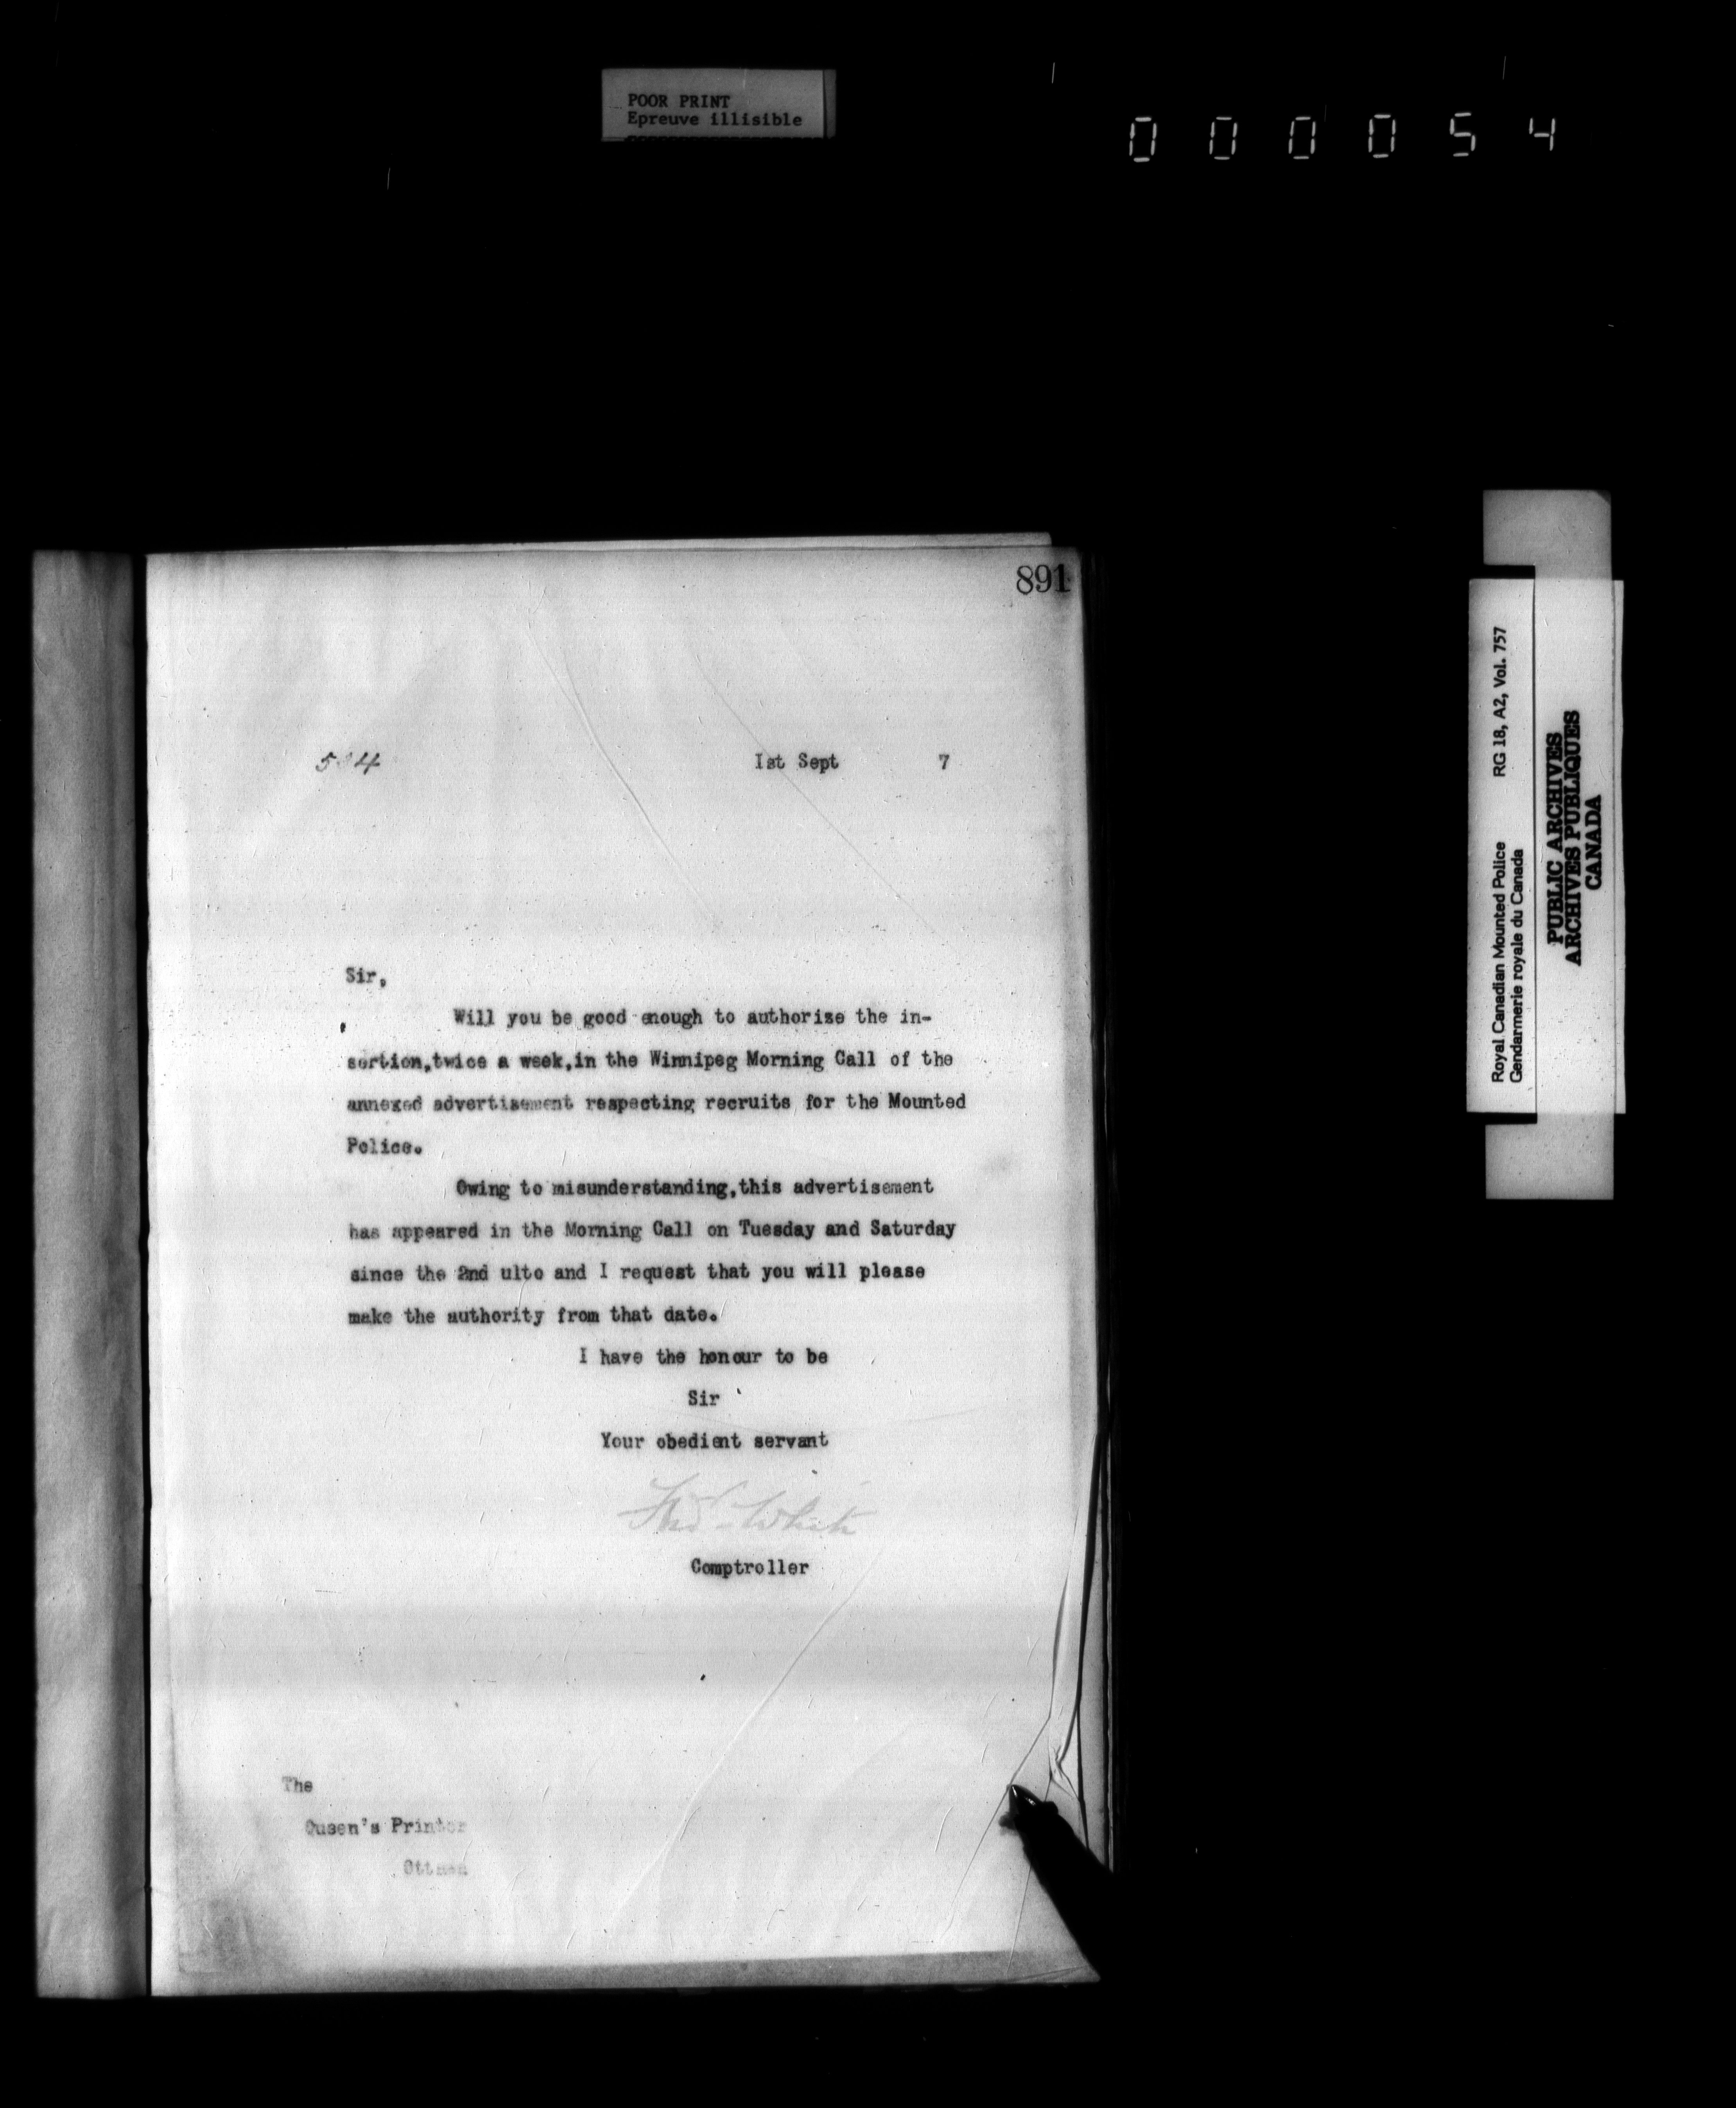 POOR PRINT
Epreuve illisible
000054
891
1st Sept 7
Sir,
Will you be good enough to authorize the in-
sertion,twice a week,in the Winnipeg Morning Call of the
annexed advertisement respecting recruits for the Mounted
Police.
Owing to misunderstanding,this advertisement
has appeared in the Morning Call on Tuesday and Saturday
since the 2nd ulto and I request that you will please
make the authority from that date.
I have the honour to be
Sir
Your obedient servant
Fred White
Comptroller
The
Queen's Printer
Ottawa
Royal Canadian Mounted Police RG 18, A2, Vol. 757
Gendarmerie royale du Canada
PUBLIC ARCHIVES
ARCHIVES PUBLIQUES
CANADA